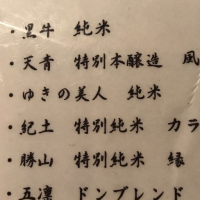 ・黒牛 純米
・天青 特別本醸造 風
・ゆきの美人 純米
・紀土 特別純米 カラ
・勝山 特別純米 縁
・五凛 ドンブレンド